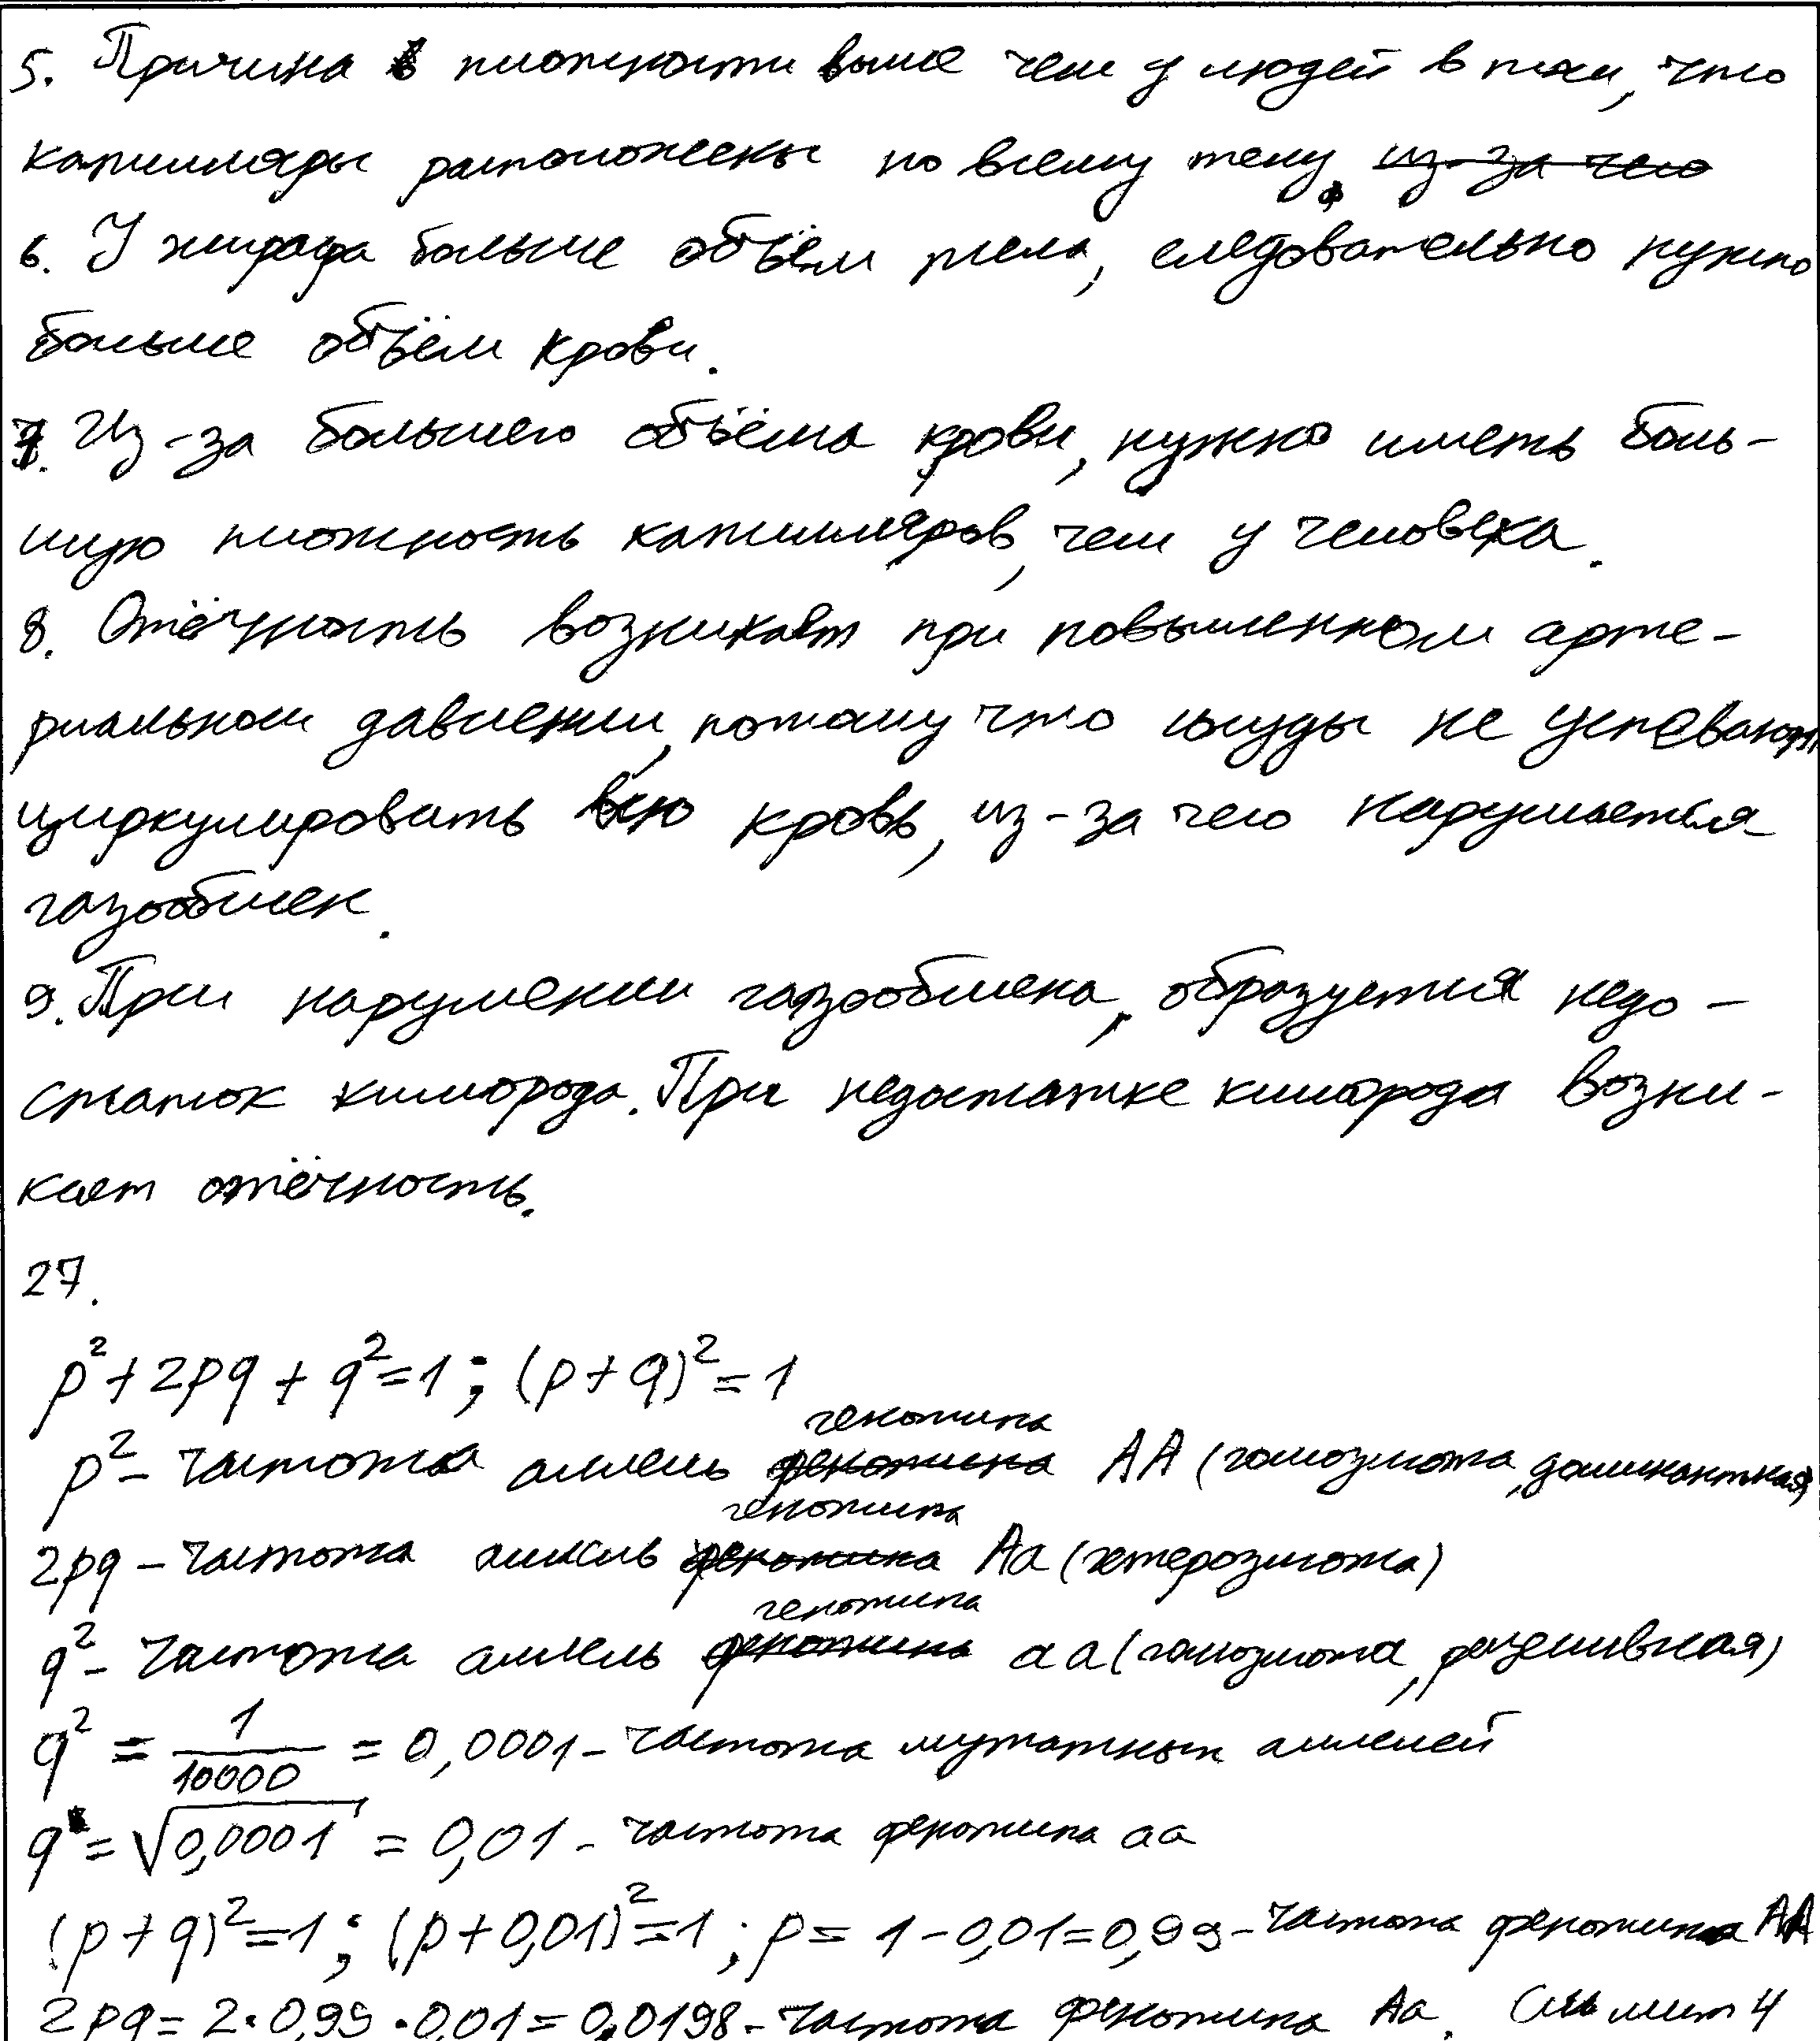 5. Причина плотности выше чем у людей в том, что
капилляры расположены по всему телу. из-за чего
6. У жирафа больше объём тела, следовательно нужно
больше объём крови.
7. Из-за большего объёма крови, нужно иметь боль-
шую плотность капилляров, чем у человека.
8. Отёчность возникает при повышенном арте-
риальном давлении, потому что сосуды не успевают
циркулировать всю кровь, из-за чего нарушается
газообмен.
9. При нарушении газообмена, образуется недо-
статок кислорода. При недостатке кислорода возни-
кает отёчность.
27.
p²+2pq+q²=1; (p+q)²=1
генотипа
p² - частота аллель фенотипа AA (гомозигота, доминантная)
генотипа
2pq - частота аллель фенотипа Aa (гетерозигота)
генотипа
q² - частота аллель фенотипа aa (гомозигота, рецессивная)
q² = 1/10000 = 0,0001 - частота мутатных аллелей
q = √0,0001 = 0,01 - частота фенотипа aa
(p+q)²=1; (p+0,01)²=1; p= 1-0,01=0,99 - частота фенотипа AA
2pq= 2·0,99·0,01=0,0198 - частота фенотипа Aa. См лист 4